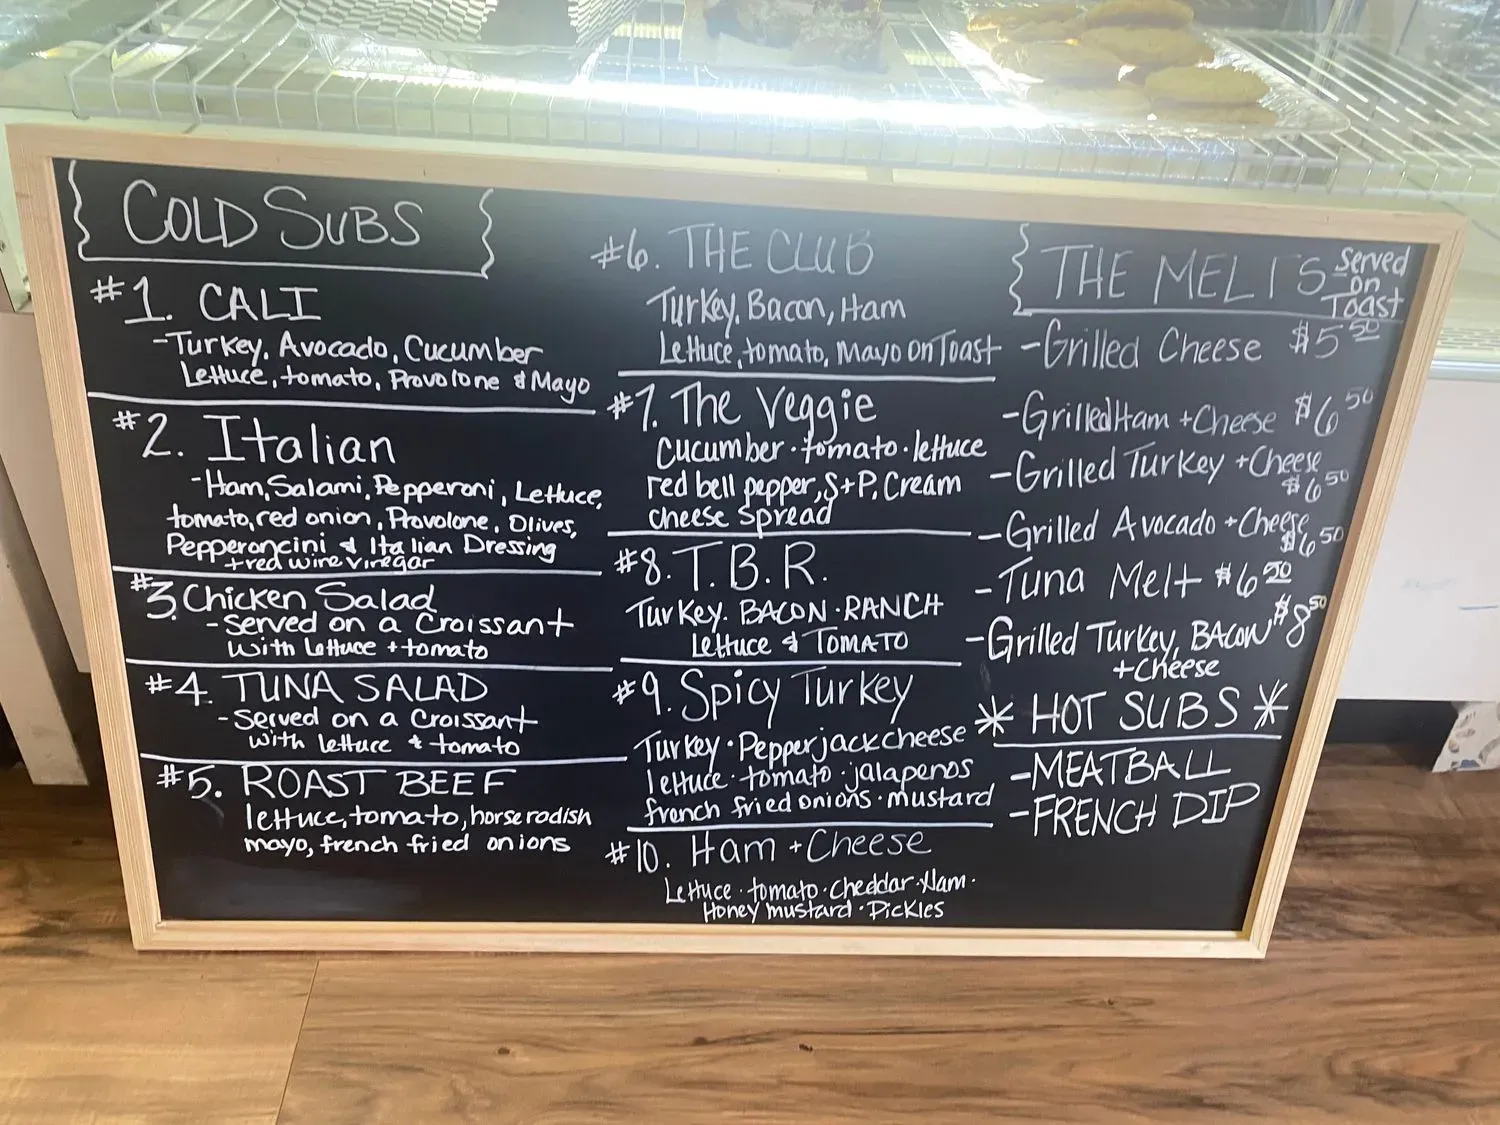 COLD SUBS
#1. CALI
-Turkey, Avocado, Cucumber
Lettuce, tomato, Provolone & Mayo
#2. Italian
-Ham, Salami, Pepperoni, Lettuce,
tomato, red onion, Provolone, Olives,
Pepperoncini & Italian Dressing
+ red wine vinegar
#3. Chicken Salad
-Served on a Croissant
with lettuce + tomato
#4. TUNA SALAD
-Served on a Croissant
with lettuce & tomato
#5. ROAST BEEF
lettuce, tomato, horseradish
mayo, french fried onions
#6. THE CLUB
Turkey, Bacon, Ham
Lettuce, tomato, Mayo on Toast
#7. The Veggie
Cucumber · tomato · lettuce
red bell pepper, S+P, Cream
cheese spread
#8. T.B.R.
Turkey. BACON · RANCH
Lettuce & TOMATO
#9. Spicy Turkey
Turkey · Pepperjack cheese
lettuce · tomato · jalapenos
french fried onions · mustard
#10. Ham + Cheese
Lettuce · tomato · cheddar · Ham ·
Honey mustard · Pickles
THE MELTS Served
on
Toast
-Grilled Cheese $5 50
-Grilled Ham + Cheese $6 50
-Grilled Turkey + Cheese
$6 50
-Grilled Avocado + Cheese
$6 50
-Tuna Melt $6 50
-Grilled Turkey, BACON $8 50
+ Cheese
* HOT SUBS *
-MEATBALL
-FRENCH DIP